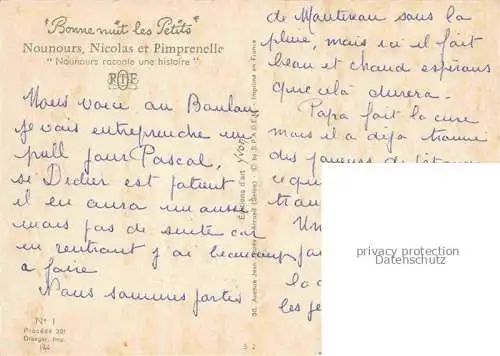 "Bonne nuit les Petits"
Nounours, Nicolas et Pimprenelle
"Nounours raconte une histoire"
RTF
Nous voici au Boulou
je vais entreprendre un
pull pour Pascal,
si Didier est patient
il en aura un aussi
mais pas de suite car
en rentrant j'ai beaucoup
a faire
Nous sommes partis
Nº 1
Procédé 301
Draeger, Imp.
144
Editions d'art Yvon
Imprimé en France
5 2
de Montereau sous la
pluie, mais ici il fait
beau et chaud espérons
que celà durera.
Papa fait la cure
mais il a déja trouvé
des joueurs de
ce qu
trau
Un
par
la
les je
privacy protection
Datenschutz